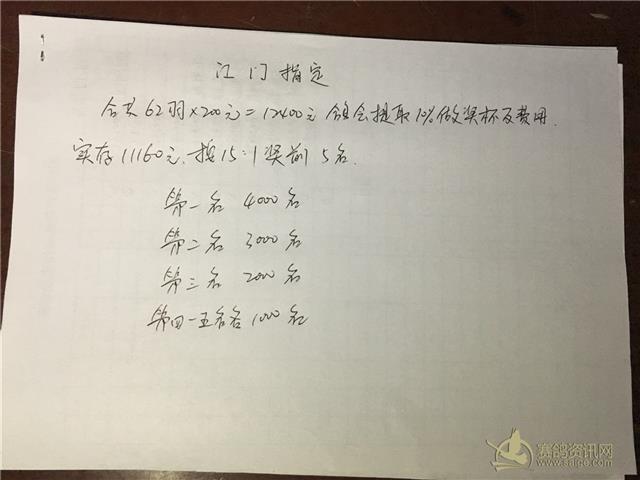 江门指定
合共62羽×200元=12400元 鸽会提取10%做奖杯及费用.
实存11160元.按15:1奖前5名.
第一名 4000名
第二名 3000名
第三名 2000名
第四一五名各1000名
赛鸽资讯网
www.saige.com